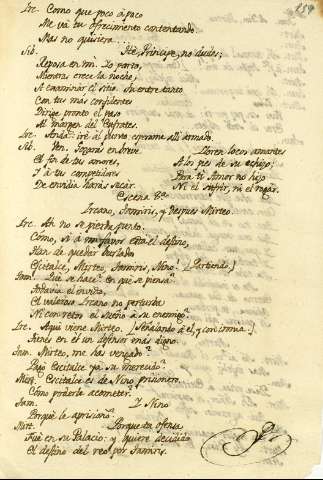 159
Irc. Como que poco à poco
Me và tu ofrecimiento contentando
Mas no quisiera ...
Sib. Ité, Principe, no dudes;
Reposa en mi. Lo parto,
Mientras crece la noche,
A examinar el sitio. Tu entre tanto
Con tus mas confidentes
Dirige pronto el paso
Al margen del Eufrates.
Irc. Anda: iré al puerto, esperame alli armado.
Sib. Ven. Gozarás en breve
El fin de tus amores,
Y à tus competidores
De envidia harás sacar.
Lloren locos amantes
A los pies de su echizo;
Para ti Amor no hizo
Ni el sufrir, ni el rogar.
Escena 8ª
Ircano, Tamiris, y despues Mirteo.
Irc. Ah no se pierda punto.
Como, si à mi favor està el destino,
Han de quedar burlados
Escitalce, Mirteo, Tamiris, Nino! [Partiendo]
Tam. Què se hace? En què se piensa?
Todavia el invita,
El valeroso Ircano no perturba
Ni con reton el sueño à su enemigo?
Irc. Aqui viene Mirteo. [Señalando à èl, y con ironia.]
Tienes en el un defensor mas digno.
Tam. Mirteo, me has vengado?
Pagò Escitalce ya su merecido?
Mirt. Escitalce es de Nino prisionero.
Como poderle acometer?
Tam. Y Nino
Porquè le aprisiona?
Mirt. Porque tu ofensa
Fuè en su Palacio: y quiere decidido
El destino del reo por Tamiris.